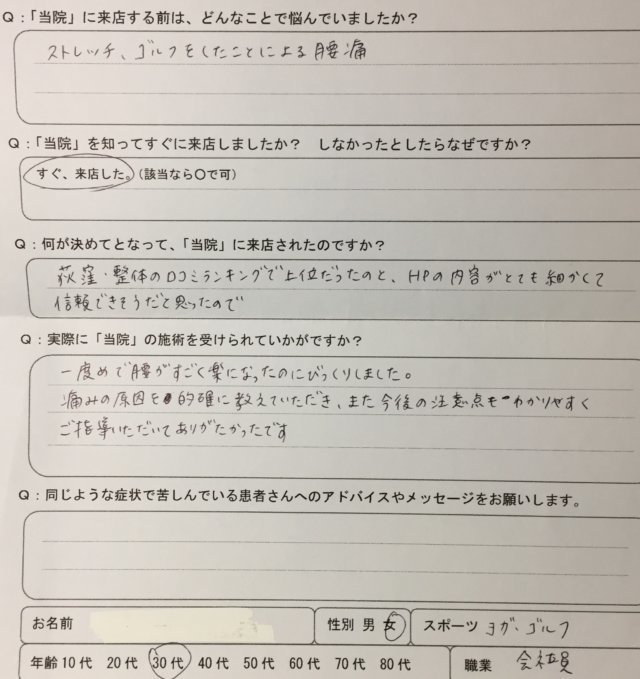 Q：「当院」に来店する前は、どんなことで悩んでいましたか？
ストレッチ、ゴルフをしたことによる腰痛
Q：「当院」を知ってすぐに来店しましたか？　しなかったとしたらなぜですか？
すぐ、来店した。（該当なら〇で可）
Q：何が決めてとなって、「当院」に来店されたのですか？
荻窪・整体の口コミランキングで上位だったのと、HPの内容がとても細かくて
信頼できそうだと思ったので
Q：実際に「当院」の施術を受けられていかがですか？
一度めで腰がすごく楽になったのにびっくりしました。
痛みの原因を的確に教えていただき、また今後の注意点もわかりやすく
ご指導いただいてありがたかったです
Q：同じような症状で苦しんでいる患者さんへのアドバイスやメッセージをお願いします。
お名前　性別 男 女　スポーツ ヨガ・ゴルフ
年齢10代　20代　30代　40代　50代　60代　70代　80代　職業　会社員